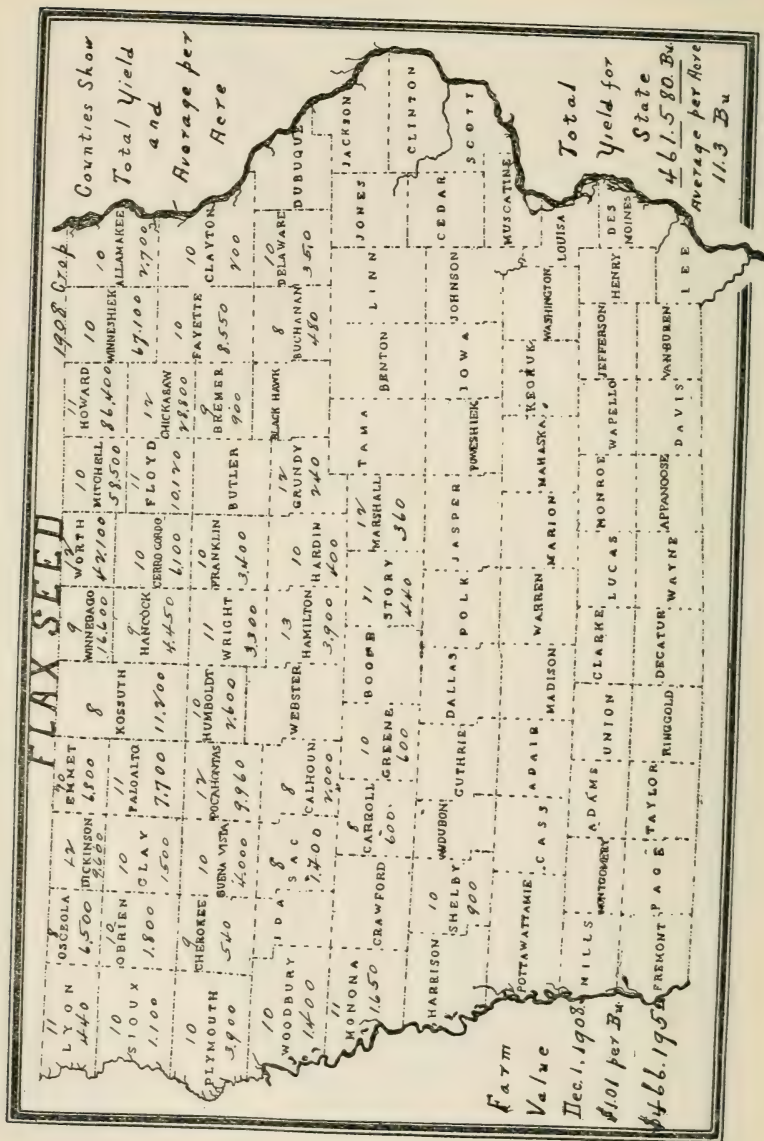 FLAX SEED
1908 Crop
Counties Show
Total Yield
and
Average per
Acre
11
LYON
440
8
OSCEOLA
6,500
12
DICKINSON
9600
10
EMMET
6,800
8
KOSSUTH
11,200
9
WINNEBAGO
16,600
12
WORTH
42,100
10
MITCHELL
58,500
11
HOWARD
86,400
10
WINNESHIEK
67,100
10
ALLAMAKEE
2,700
10
SIOUX
1,100
10
OBRIEN
1,800
10
CLAY
1500
11
PALOALTO
7,700
9
HANCOCK
4,450
10
CERRO GORDO
6,100
11
FLOYD
10,120
12
CHICKASAW
28,800
10
FAYETTE
8,550
10
CLAYTON
200
10
PLYMOUTH
3,900
9
CHEROKEE
540
10
BUENA VISTA
4,000
12
POCAHONTAS
9,960
10
HUMBOLDT
2,600
11
WRIGHT
3,300
10
FRANKLIN
3,400
BUTLER
9
BREMER
900
10
WOODBURY
1,400
IDA
8
SAC
7,400
8
CALHOUN
2,000
WEBSTER
13
HAMILTON
3,900
10
HARDIN
400
12
GRUNDY
240
BLACK HAWK
8
BUCHANAN
480
10
DELAWARE
350
DUBUQUE
11
MONONA
1,650
CRAWFORD
8
CARROLL
600
10
GREENE
600
BOONE
11
STORY
440
12
MARSHALL
360
TAMA
BENTON
LINN
JONES
JACKSON
HARRISON
10
SHELBY
900
AUDUBON
GUTHRIE
DALLAS
POLK
JASPER
POWESHIEK
IOWA
JOHNSON
CEDAR
CLINTON
SCOTT
MUSCATINE
POTTAWATTAMIE
CASS
ADAIR
MADISON
WARREN
MARION
MAHASKA
KEOKUK
WASHINGTON
LOUISA
MILLS
MONTGOMERY
ADAMS
UNION
CLARKE
LUCAS
MONROE
WAPELLO
JEFFERSON
HENRY
DES
MOINES
FREMONT
PAGE
TAYLOR
RINGGOLD
DECATUR
WAYNE
APPANOOSE
DAVIS
VAN BUREN
LEE
Farm
Value
Dec. 1, 1908,
$1.01 per Bu.
Total
Yield for
State
461.580. Bu.
Average per Acre
11.3 Bu